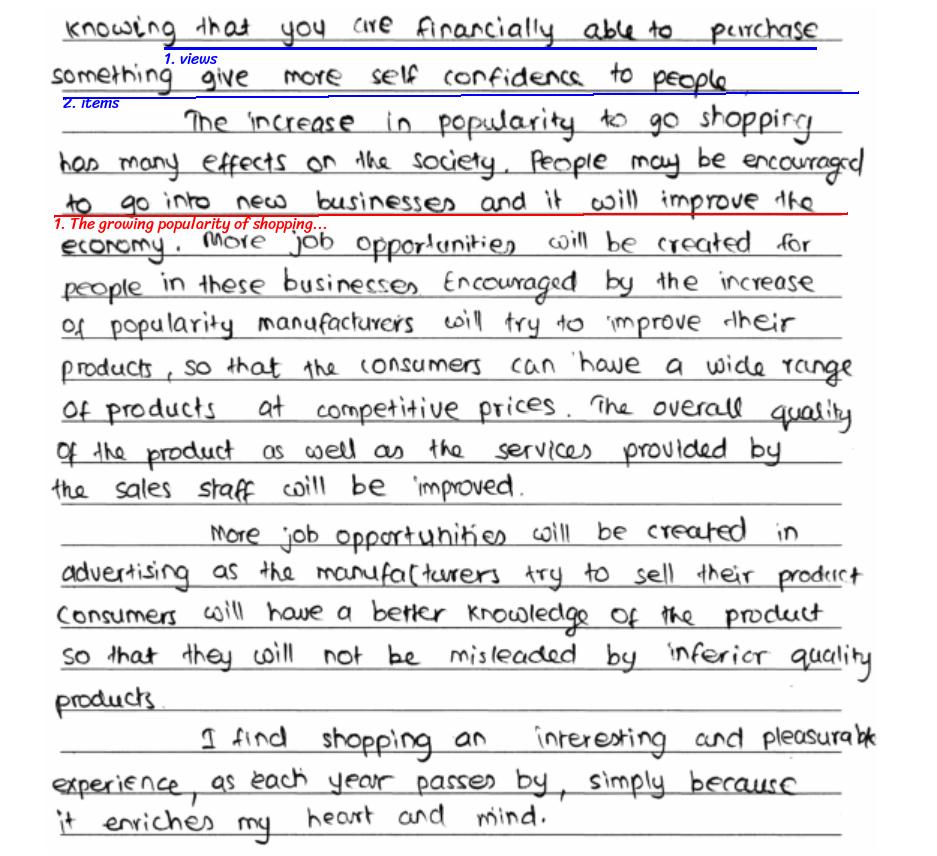 knowing that you are financially able to purchase
1. views
something give more self confidence to people
2. items
The increase in popularity to go shopping
has many effects on the society. People may be encouraged
to go into new businesses and it will improve the
1. The growing popularity of shopping...
economy. More job opportunities will be created for
people in these businesses. Encouraged by the increase
of popularity manufacturers will try to improve their
products, so that the consumers can have a wide range
of products at competitive prices. The overall quality
of the product as well as the services provided by
the sales staff will be improved.
More job opportunities will be created in
advertising as the manufacturers try to sell their product
Consumers will have a better knowledge of the product
so that they will not be misleaded by inferior quality
products.
I find shopping an interesting and pleasurable
experience, as each year passes by, simply because
it enriches my heart and mind.